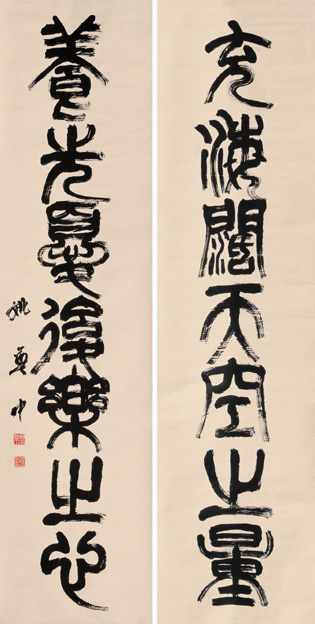 充海闊天空之量
養先憂後樂之心
姚奠中